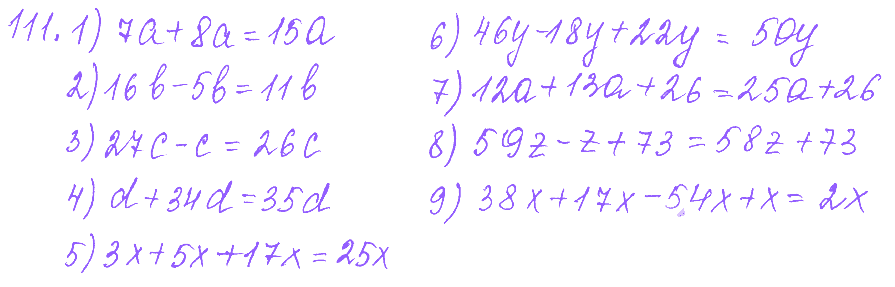 111. 1) 7a + 8a = 15a
2) 16b - 5b = 11b
3) 27c - c = 26c
4) d + 34d = 35d
5) 3x + 5x + 17x = 25x
6) 46y - 18y + 22y = 50y
7) 12a + 13a + 26 = 25a + 26
8) 59z - z + 73 = 58z + 73
9) 38x + 17x - 54x + x = 2x